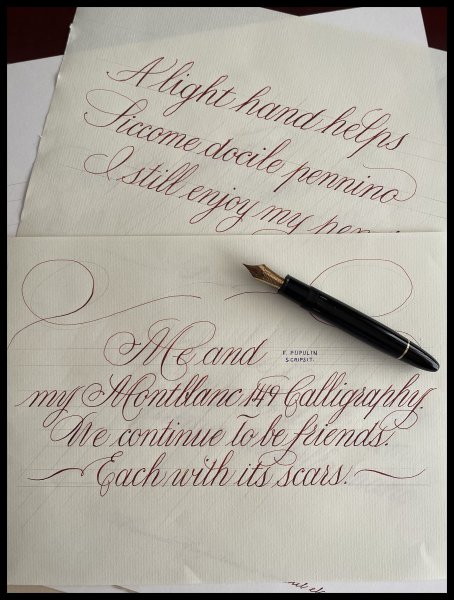 A light hand helps
Siccome docile pennino
I still enjoy my
Me and
F. PUPULIN
SCRIPSIT.
my Montblanc 149 Calligraphy.
We continue to be friends.
Each with its scars.